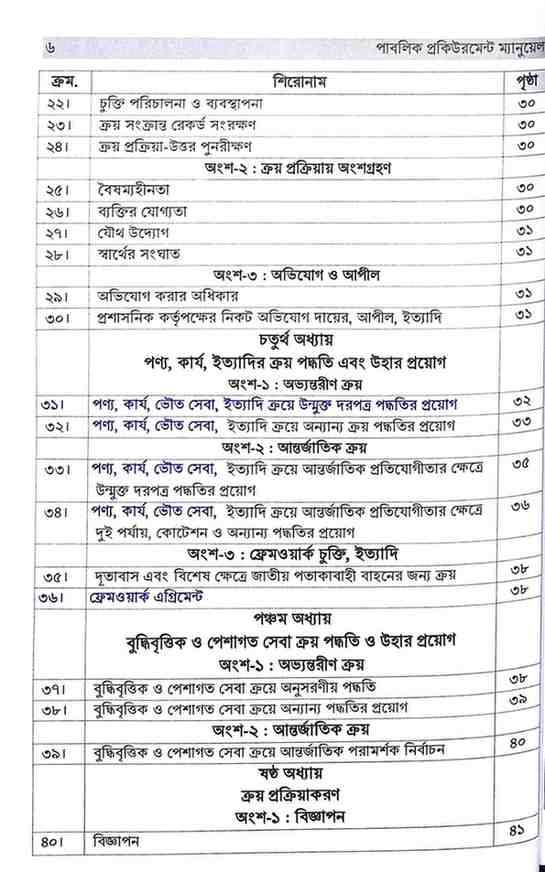 ৬ পাবলিক প্রকিউরমেন্ট ম্যানুয়েল
ক্রম. শিরোনাম পৃষ্ঠা
২২। চুক্তি পরিচালনা ও ব্যবস্থাপনা ৩০
২৩। ক্রয় সংক্রান্ত রেকর্ড সংরক্ষণ ৩০
২৪। ক্রয় প্রক্রিয়া-উত্তর পুনরীক্ষণ ৩০
অংশ-২ : ক্রয় প্রক্রিয়ায় অংশগ্রহণ
২৫। বৈষম্যহীনতা ৩০
২৬। ব্যক্তির যোগ্যতা ৩০
২৭। যৌথ উদ্যোগ ৩১
২৮। স্বার্থের সংঘাত ৩১
অংশ-৩ : অভিযোগ ও আপীল
২৯। অভিযোগ করার অধিকার ৩১
৩০। প্রশাসনিক কর্তৃপক্ষের নিকট অভিযোগ দায়ের, আপীল, ইত্যাদি ৩১
চতুর্থ অধ্যায়
পণ্য, কার্য, ইত্যাদির ক্রয় পদ্ধতি এবং উহার প্রয়োগ
অংশ-১ : অভ্যন্তরীণ ক্রয়
৩১। পণ্য, কার্য, ভৌত সেবা, ইত্যাদি ক্রয়ে উন্মুক্ত দরপত্র পদ্ধতির প্রয়োগ ৩২
৩২। পণ্য, কার্য, ভৌত সেবা, ইত্যাদি ক্রয়ে অন্যান্য ক্রয় পদ্ধতির প্রয়োগ ৩৩
অংশ-২ : আন্তর্জাতিক ক্রয়
৩৩। পণ্য, কার্য, ভৌত সেবা, ইত্যাদি ক্রয়ে আন্তর্জাতিক প্রতিযোগীতার ক্ষেত্রে ৩৫
উন্মুক্ত দরপত্র পদ্ধতির প্রয়োগ
৩৪। পণ্য, কার্য, ভৌত সেবা, ইত্যাদি ক্রয়ে আন্তর্জাতিক প্রতিযোগীতার ক্ষেত্রে ৩৬
দুই পর্যায়, কোটেশন ও অন্যান্য পদ্ধতির প্রয়োগ
অংশ-৩ : ফ্রেমওয়ার্ক চুক্তি, ইত্যাদি
৩৫। দূতাবাস এবং বিশেষ ক্ষেত্রে জাতীয় পতাকাবাহী বাহনের জন্য ক্রয় ৩৮
৩৬। ফ্রেমওয়ার্ক এগ্রিমেন্ট ৩৮
পঞ্চম অধ্যায়
বুদ্ধিবৃত্তিক ও পেশাগত সেবা ক্রয় পদ্ধতি ও উহার প্রয়োগ
অংশ-১ : অভ্যন্তরীণ ক্রয়
৩৭। বুদ্ধিবৃত্তিক ও পেশাগত সেবা ক্রয়ে অনুসরণীয় পদ্ধতি ৩৮
৩৮। বুদ্ধিবৃত্তিক ও পেশাগত সেবা ক্রয়ে অন্যান্য পদ্ধতির প্রয়োগ ৩৯
অংশ-২ : আন্তর্জাতিক ক্রয়
৩৯। বুদ্ধিবৃত্তিক ও পেশাগত সেবা ক্রয়ে আন্তর্জাতিক পরামর্শক নির্বাচন ৪০
ষষ্ঠ অধ্যায়
ক্রয় প্রক্রিয়াকরণ
অংশ-১ : বিজ্ঞাপন
৪০। বিজ্ঞাপন ৪১